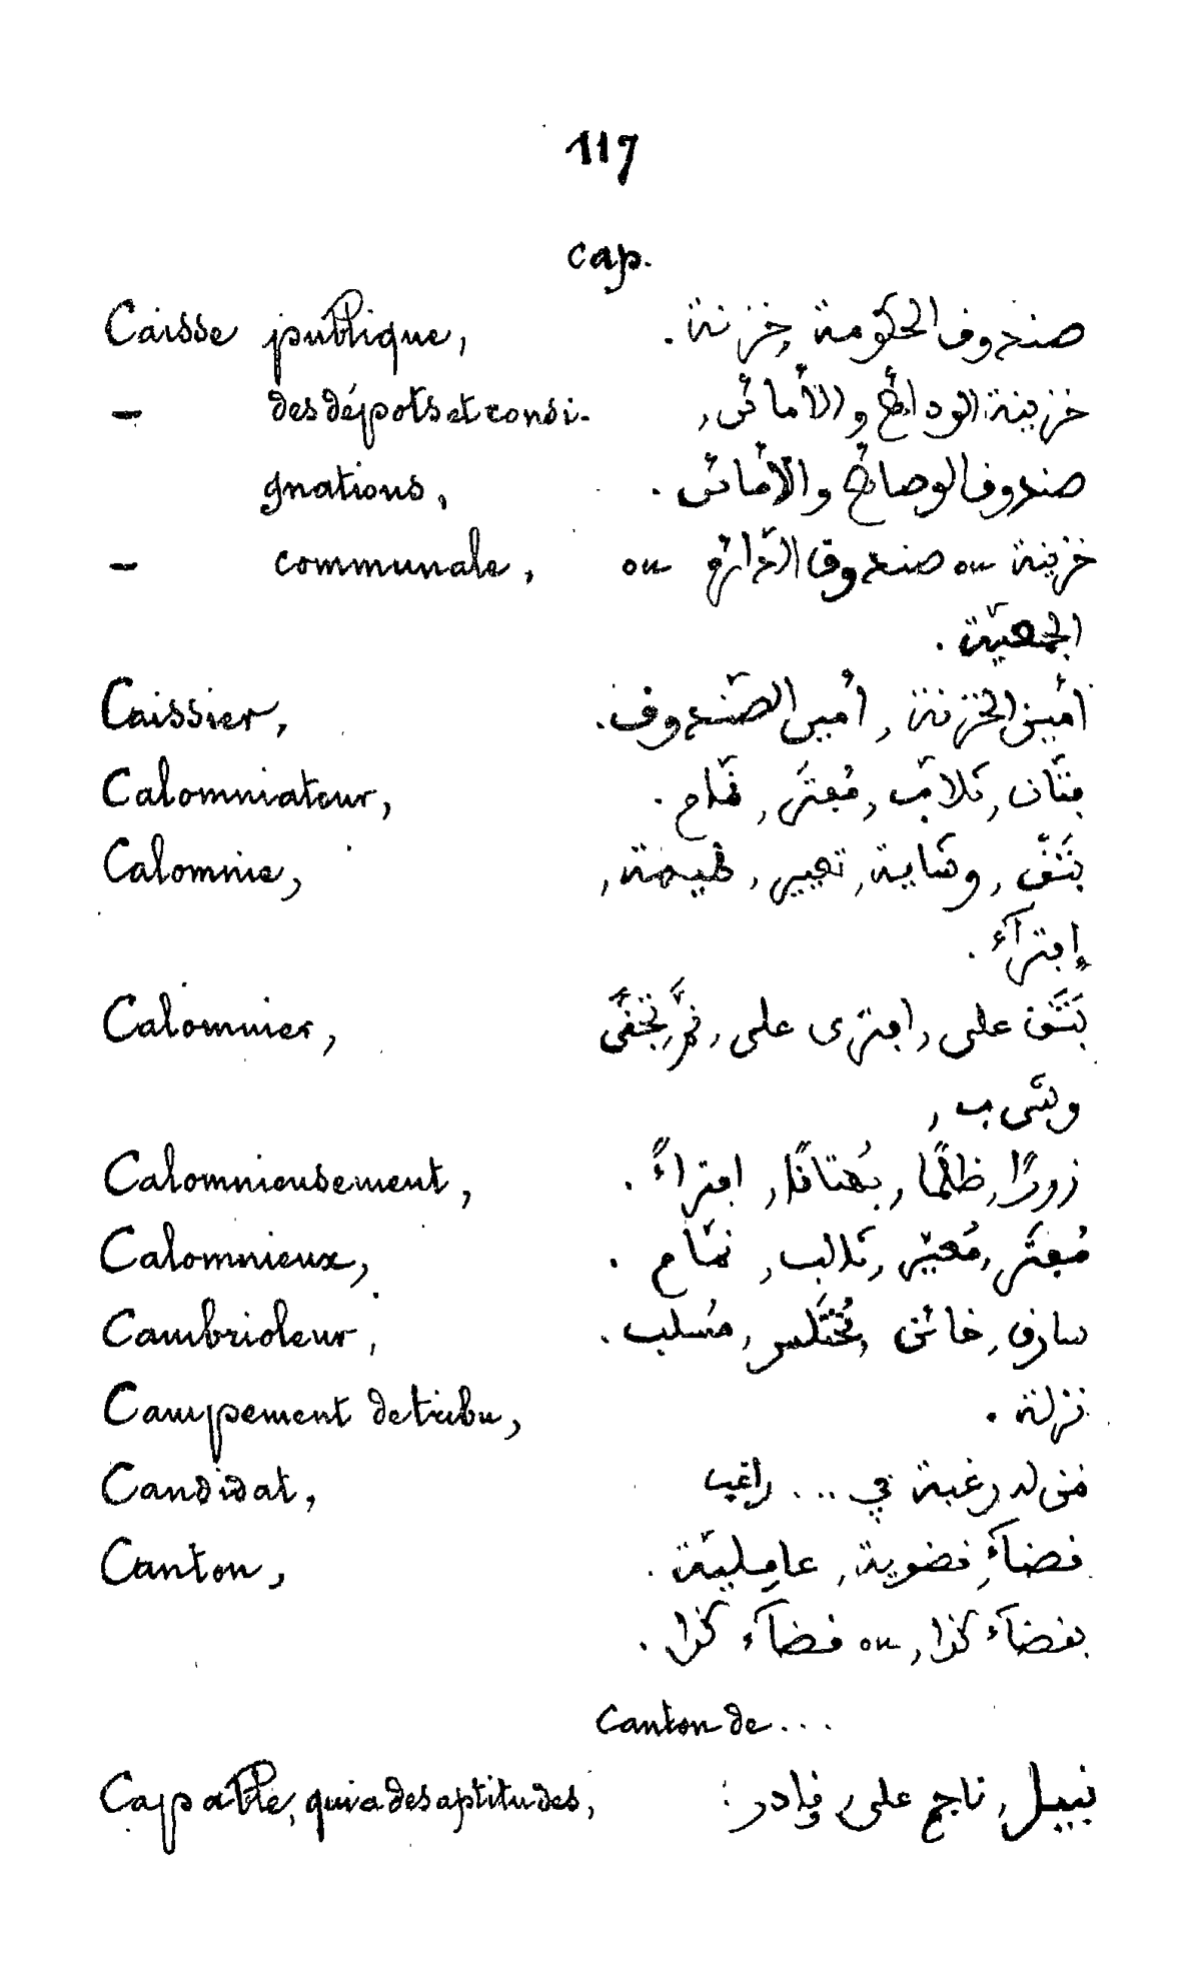 117
cap.
Caisse publique, صندوق الحكومة, خزنة.
— des dépôts et consi- خزينة الودائع والأمائن,
gnations, صندوق الوصائع والأمائن.
— communale, خزينة ou صندوق الدائرة ou
الجمعية.
Caissier, أمين الخزنة, أمين الصّندوق.
Calomniateur, فتّان, ثلاّب, مُفتَر, نمّام.
Calomnie, وشاية, تعيير,
إفترآء.
Calomnier, على, افترى على, نمَّ,
وشى ب,
Calomnieusement, زورًا, ظلمًا, بُهتانًا, افتراءً.
Calomnieux, مُفتَر, مُعيّر, ثالب, نمّام.
Cambrioleur, سارق, خائن, مُختَلس, مُسلب.
Campement de tribu, نزلة.
Candidat, من له رغبة في ... راغب
Canton, قضآء, قضوية, عاملية.
بقضآء كذا, ou قضآء كذا.
Canton de...
Capable, qui a des aptitudes, نبيل, ناجح على, قادر.